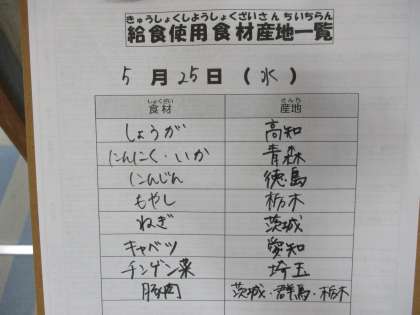 きゅうしょくしようしょくざいさんちいちらん
給食使用食材産地一覧
5月25日(水)
しょくざい さんち
食材 産地
しょうが 高知
にんにく・いか 青森
にんじん 徳島
もやし 栃木
ねぎ 茨城
キャベツ 愛知
チンゲン菜 埼玉
豚肉 茨城・群馬・栃木